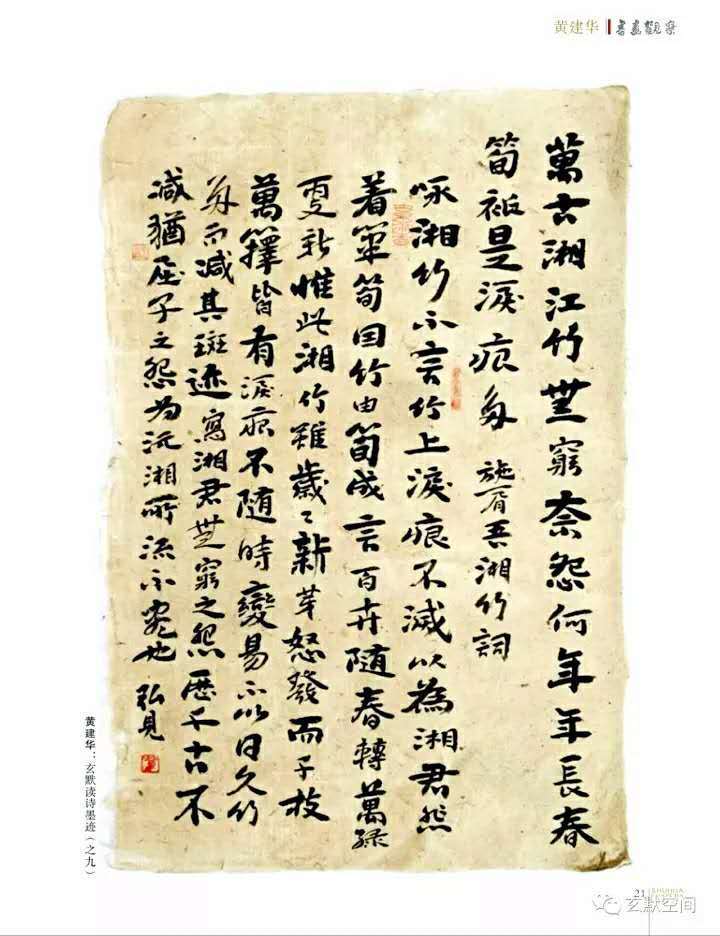 黄建华 書畫觀察
萬古湘江竹無窮柰怨何年年長春
筍祇是淚痕多 施肩吾湘竹詞
咏湘竹不言竹上淚痕不滅以為湘君怨
着筆筍因竹由筍成言百卉隨春轉萬綠
更新惟此湘竹雖歲〻新芽怒發而千枝
萬籜皆有淚痕不隨時變易不以日久竹
多而減其斑迹寫湘君無窮之怨歷千古不
減猶屈子之怨為沅湘所流不盡也 弘見
黄建华：玄默读诗墨迹（之九）
21
玄默空间